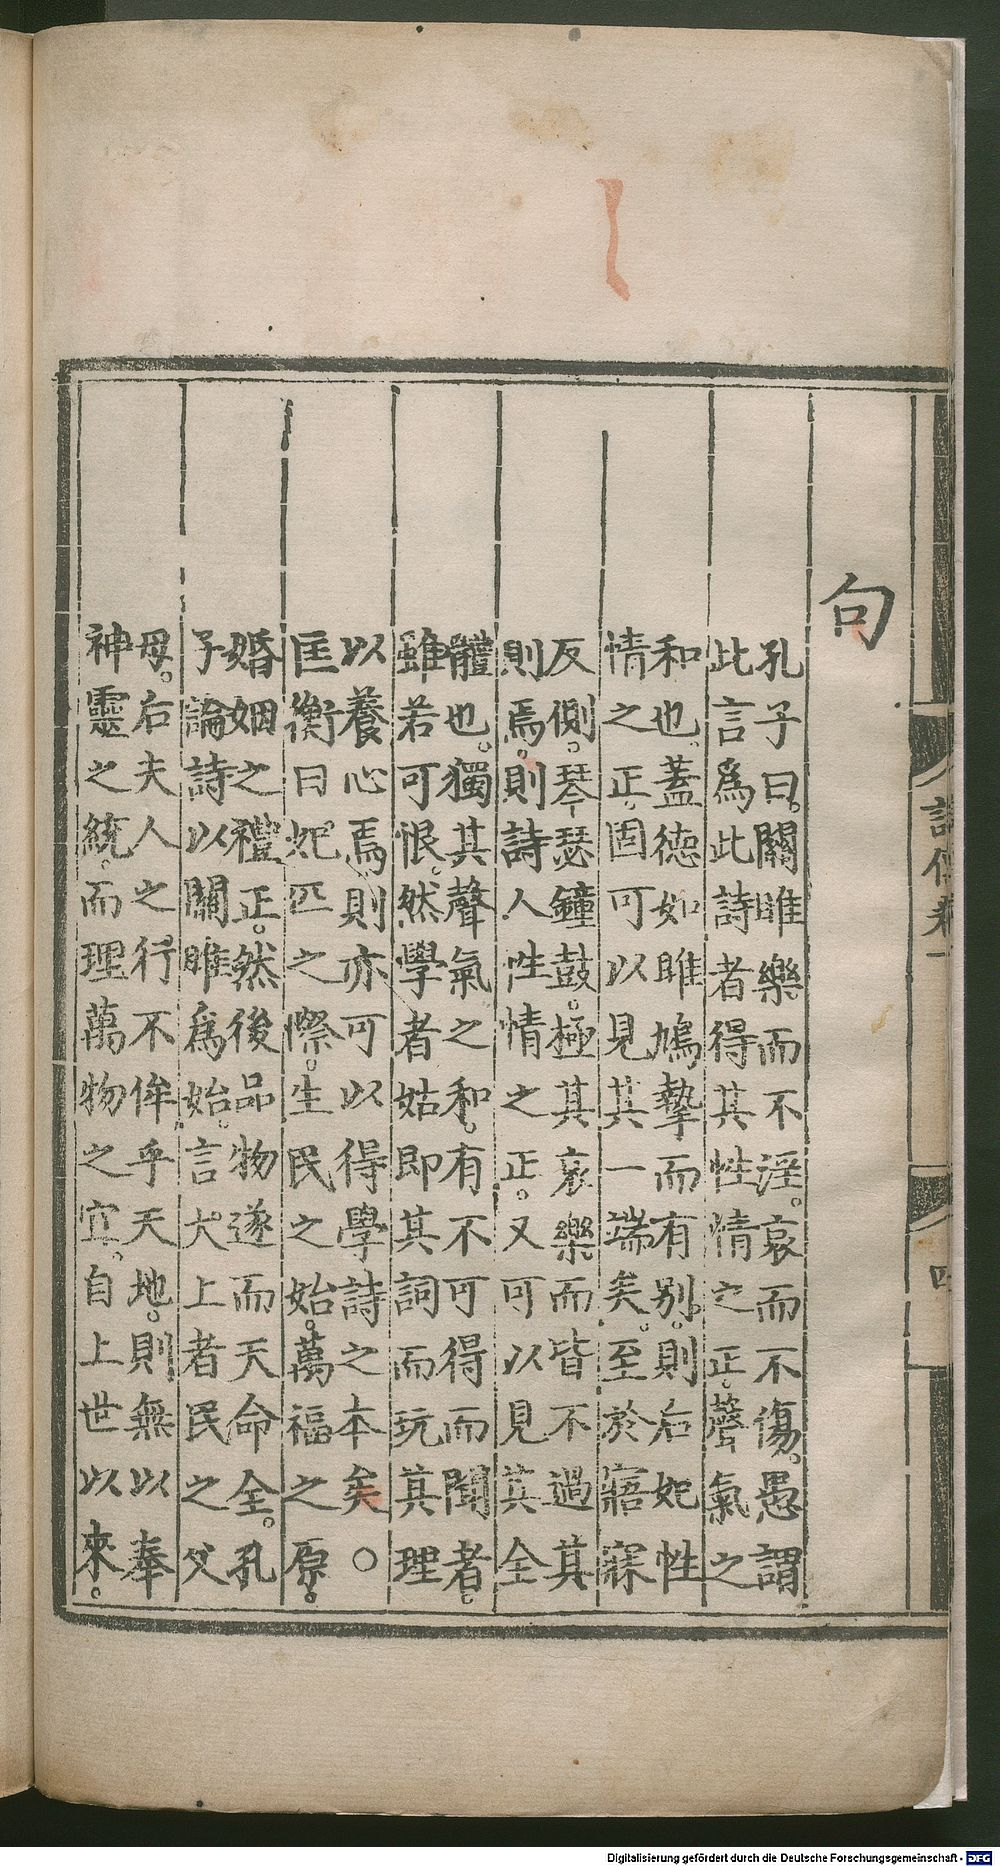 句
孔子曰。關雎樂而不淫。哀而不傷。愚謂
此言爲此詩者得其性情之正。聲氣之
和也。蓋德如雎鳩摯而有别。則后妃性
情之正。固可以見其一端矣。至於寤寐
反側。琴瑟鐘鼓。極其哀樂而皆不過其
則焉。則詩人性情之正。又可以見其全
體也。獨其聲氣之和。有不可得而聞者。
雖若可恨。然學者姑即其詞而玩其理
以養心焉則亦可以得學詩之本矣○
匡衡曰妃匹之際。生民之始。萬福之原。
婚姻之禮正。然後品物遂而天命全。孔
子論詩以關雎爲始。言太上者民之父
母。后夫人之行不侔乎天地。則無以奉
神靈之統。而理萬物之宜。自上世以來。
詩傳卷一
Digitalisierung gefördert durch die Deutsche Forschungsgemeinschaft - DFG